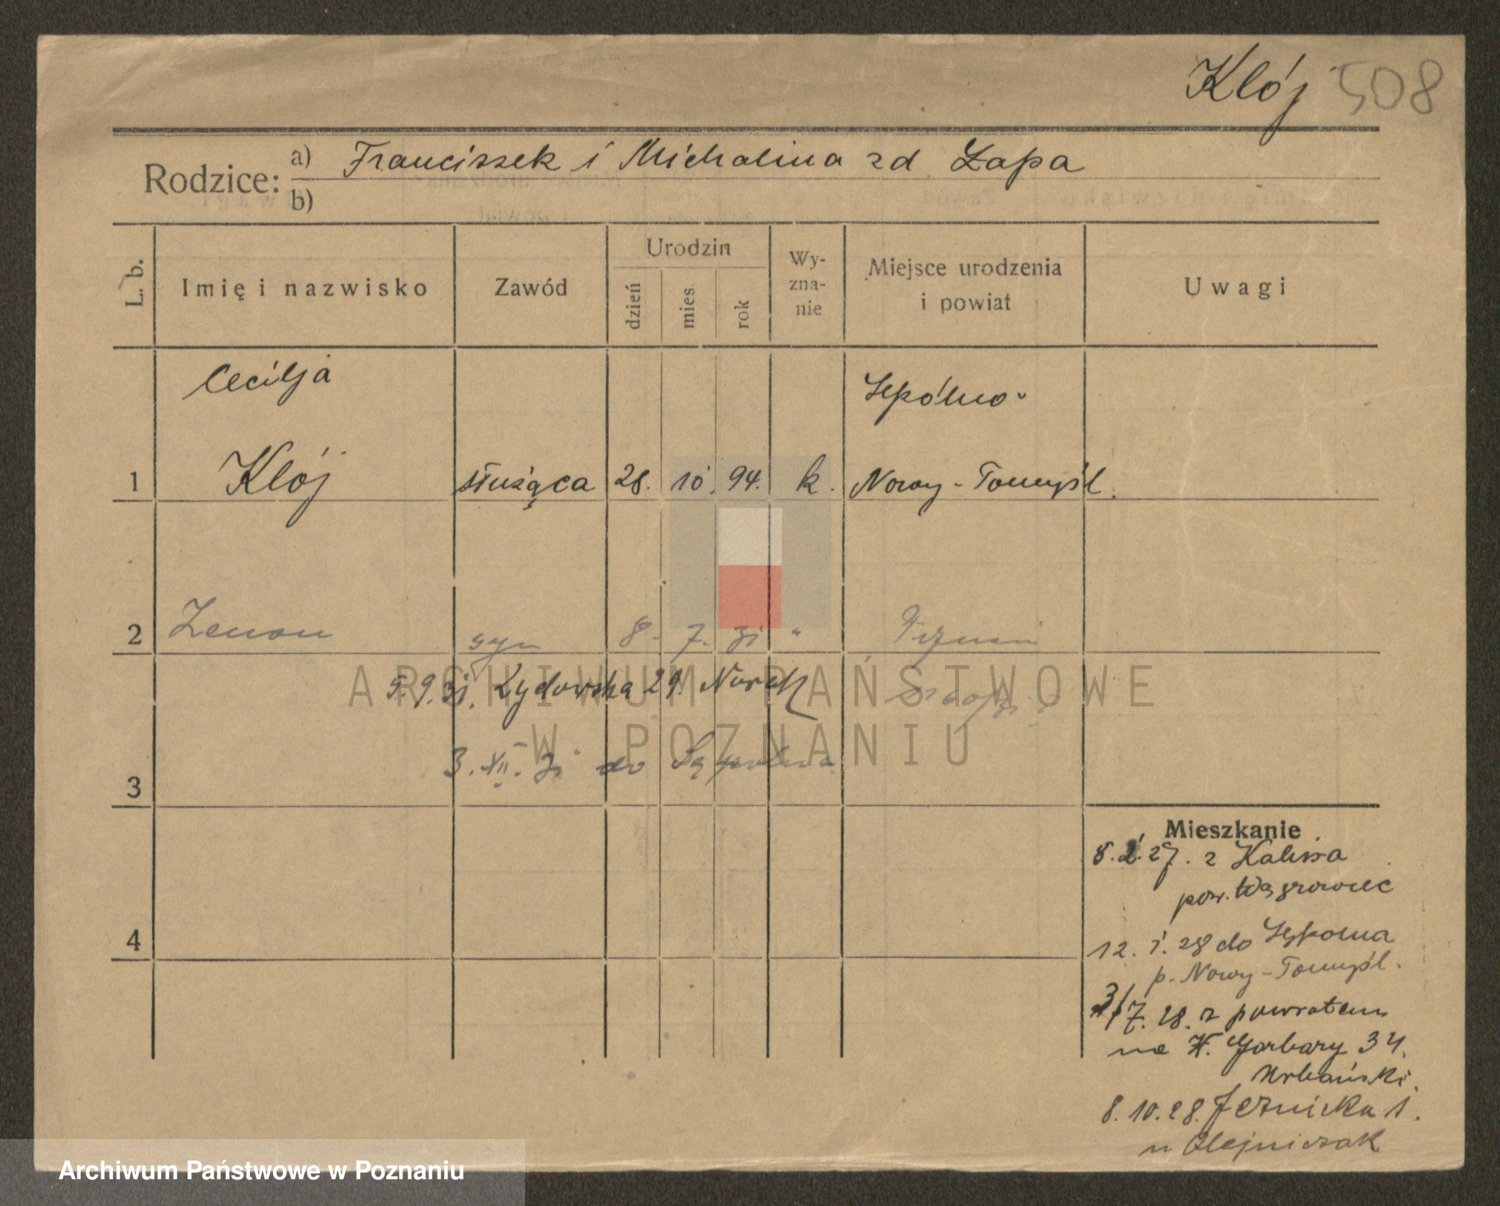 Klój 508
Rodzice: a) Franciszek i Michalina zd Łapa
b)
L. b.
Imię i nazwisko
Zawód
Urodzin
dzień
mies
rok
Wy-
zna-
nie
Miejsce urodzenia
i powiat
Uwagi
Cecilja
Sępólno-
1 Klój służąca 28. 10. 94. k. Nowy-Tomyśl.
2 Zenon syn 8. 7. 31 "
5.9.31. Żydowska 29. Nowak
3. XII. 31 do Sępolna
3
ARCHIWUM PAŃSTWOWE
W POZNANIU
Mieszkanie
8. 2. 27. z Kalisza
pow. Wągrowiec
4
12. 1. 28 do Sępolna
p. Nowy-Tomyśl.
3/7. 28. z powrotem
na W. Garbary 34.
Urbański.
8. 10. 28. Jeznicka 1.
u Olejniczak
Archiwum Państwowe w Poznaniu